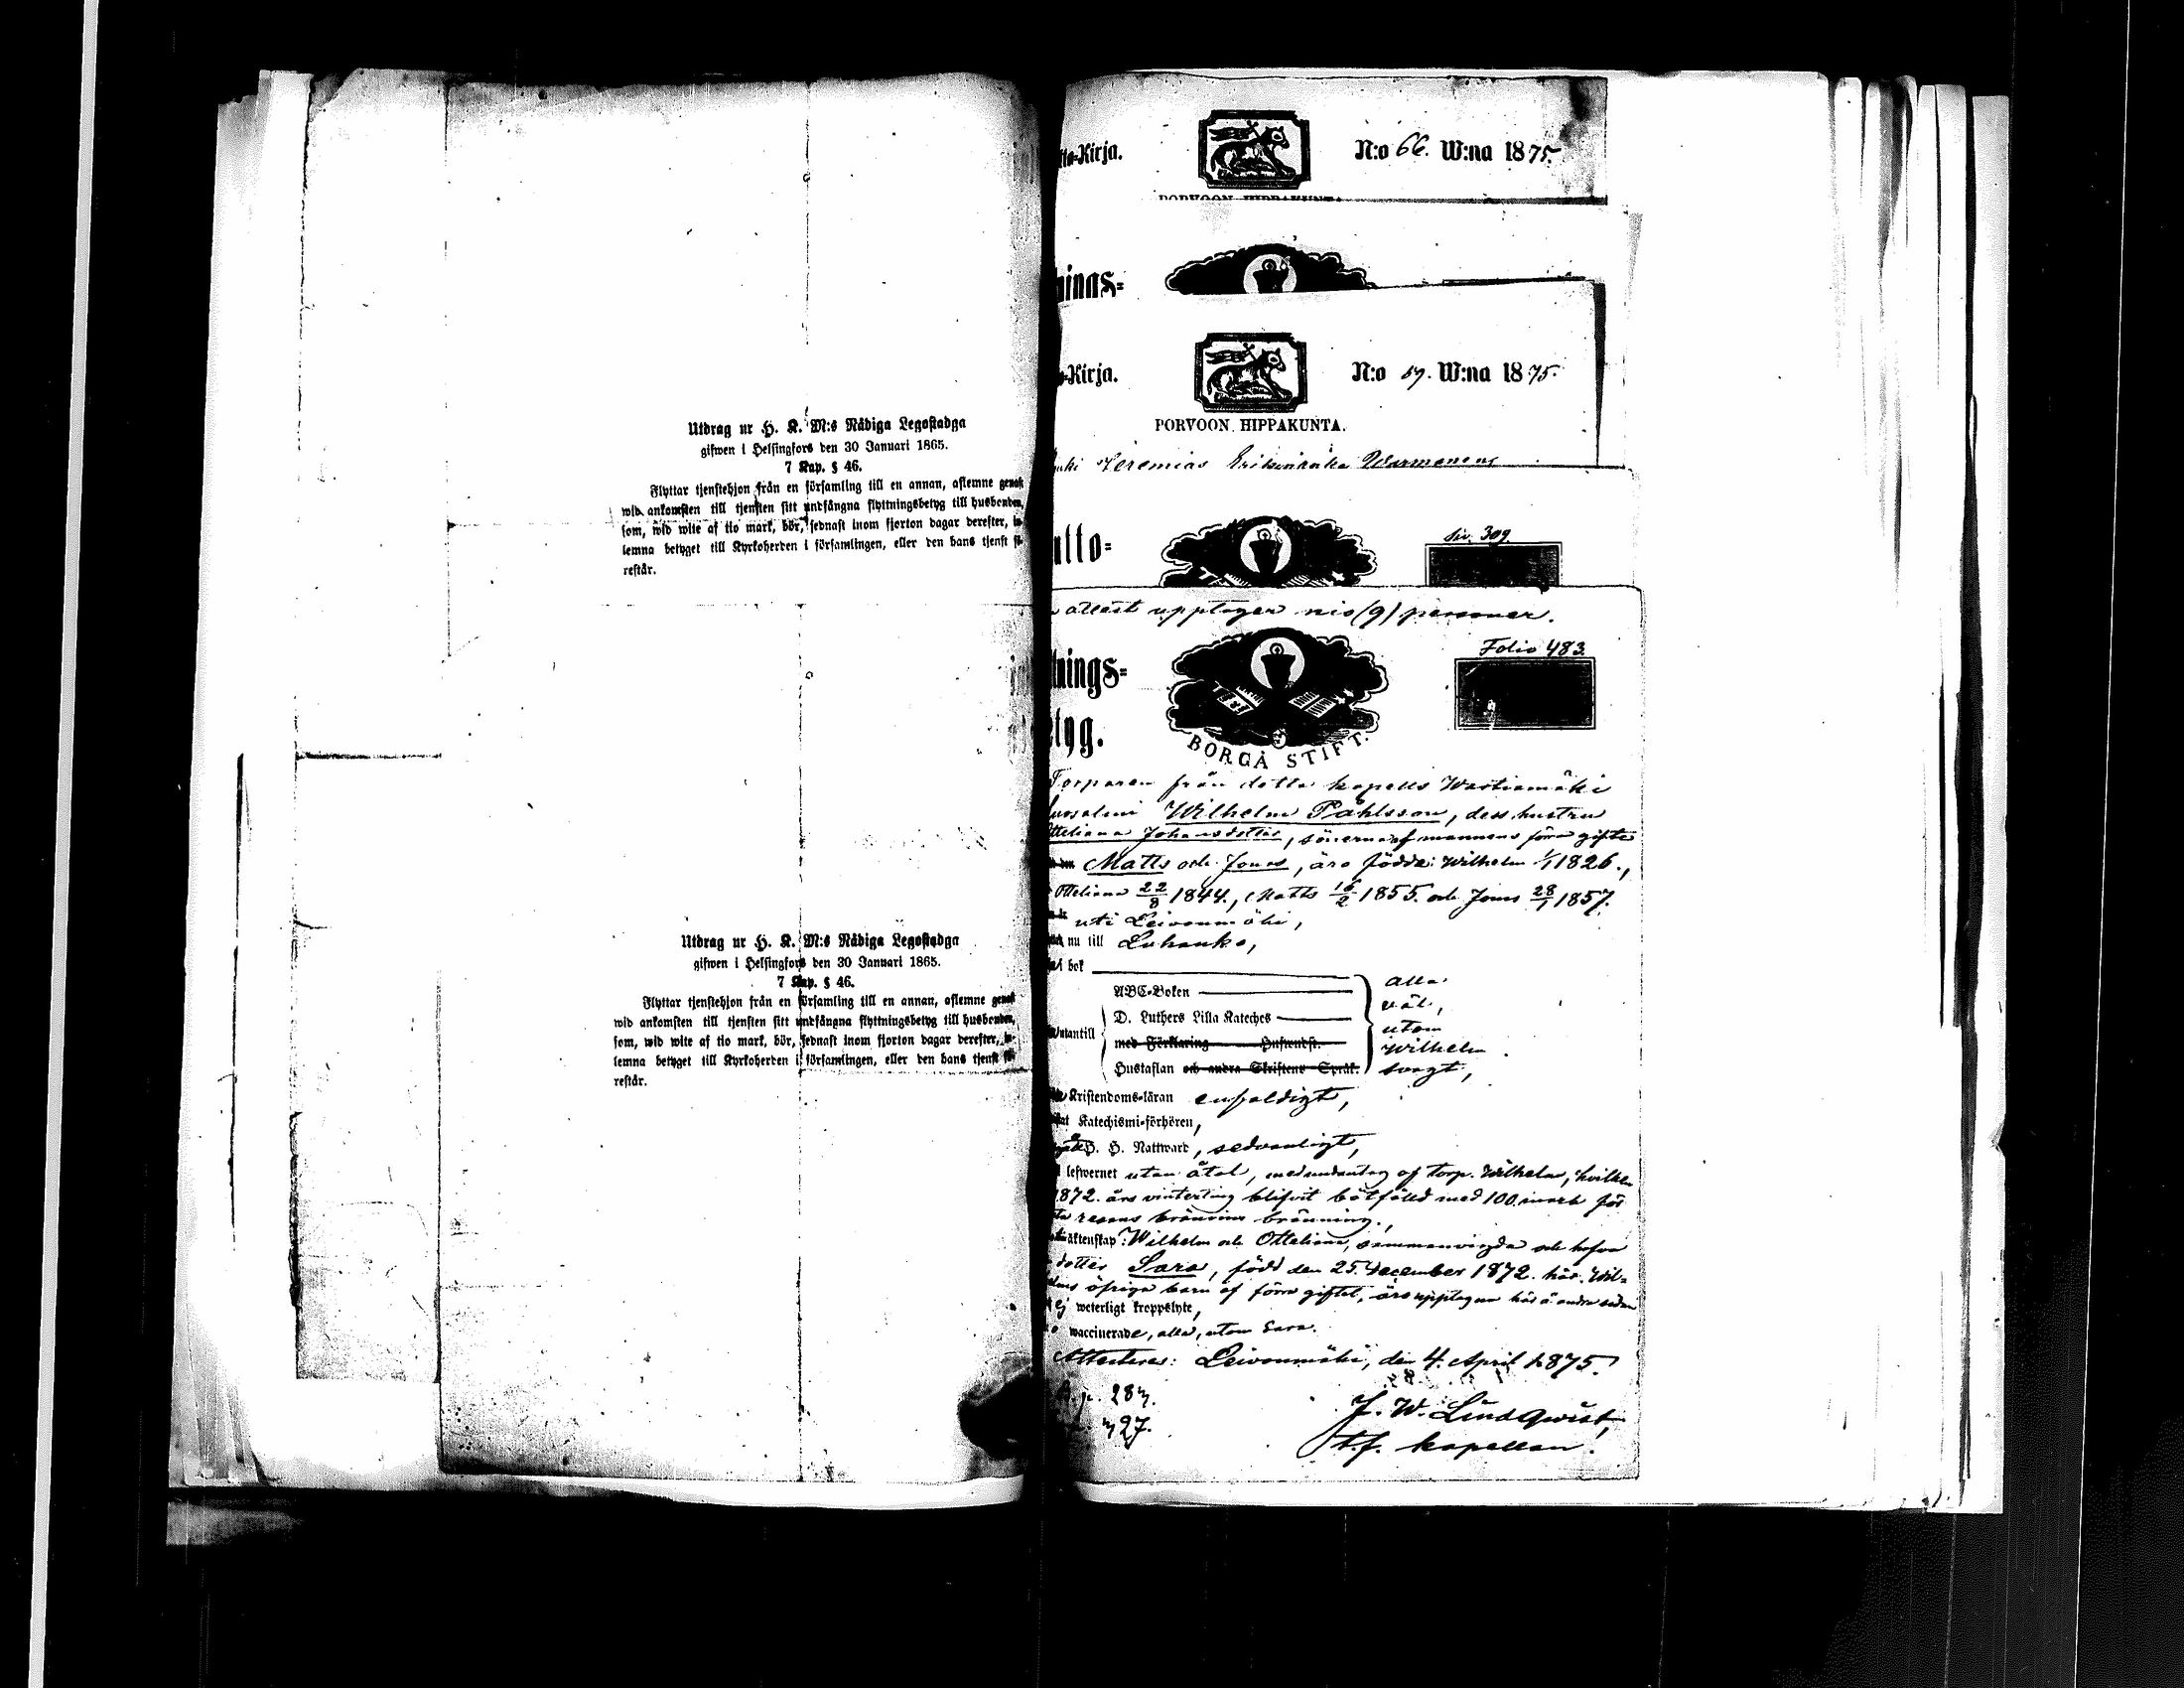 Utdrag ur H. K. M:s Nådiga Legostadga
gifwen i Helsingfors den 30 Januari 1865.
7 Kap. § 46.
Flyttar tjenstehjon från en församling till en annan, aflemne genast
wid ankomsten till tjensten sitt undfångna flyttningsbetyg till husbonden,
som, wid wite af tio mark, bör, sednast inom fjorton dagar derefter, in-
lemna betyget till Kyrkoherden i församlingen, eller den hans tjenst
restår.
Utdrag ur H. K. M:s Nådiga Legostadga
gifwen i Helsingfors den 30 Januari 1865.
7 Kap. § 46.
Flyttar tjenstehjon från en församling till en annan, aflemne genast
wid ankomsten till tjensten sitt undfångna flyttningsbetyg till husbonden,
som, wid wite af tio mark, bör, sednast inom fjorton dagar derefter, in-
lemna betyget till Kyrkoherden i församlingen, eller den hans tjenst
restår.
to-Kirja. N:o 66. W:na 1875.
PORVOON HIPPAKUNTA
nings-
-Kirja. N:o 59. W:na 1875.
PORVOON HIPPAKUNTA.
Jeremias Warmanen
utto=
Siv. 309.
attest upptager nio (9) personer.
tnings=
Folio 483.
etyg.
BORGÅ STIFT.
Torparen från detta kapells Wartiamäki
Wilhelm Påhlsson, dess hustru
Otteliana Johansdotter, sönerna af mannens förra gifte
Matts och Jonas, äro födda: Wilhelm 1/1 1826.,
Otteliana 22/8 1844., Matts 16/2 1855. och Jonas 28/1 1857.
uti Leivonmäki,
nu till Luhanka,
i bok
ABC-Boken
D. Luthers Lilla Kateches
Utantill
med Förklaring Hufwudst.
Hustaflan och andra Skriftens Språk.
alla
väl,
utom
Wilhelm
svagt,
Kristendoms-läran enfaldigt,
Katechismi-förhören,
H. H. Nattward, sedvanligt,
lefwernet utan åtal, med undantag af torp. Wilhelm, hvilken
1872. års vinterting blifvit bötfälld med 100. mark för
resans brännvins bränning.,
äktenskap: Wilhelm och Otteliana, sammanvigda och hafva
dotter Sara, född den 25. December 1872. här. Wil-
öfriga barn af förra giftet, äro upptagna här å andra sidan
ej weterligt kroppslyte,
waccinerade, alla, utom Sara.
Attesteras: Leivonmäki, den 4. April 1875.
p. 287.
727.
J. W. Lindqwist,
t.f. kapellan.